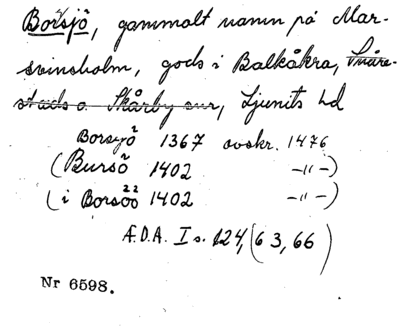 Borsjö, gammalt namn på Mar-
svinsholm, gods i Balkåkra, Snåre-
stads o. Skårby snr, Ljunits hd
Borsyö 1367 avskr. 1476
(Bursö 1402 -"-)
(i Borsöö 1402 -"-)
Æ.D.A. I s. 124, (63, 66)
Nr 6598.